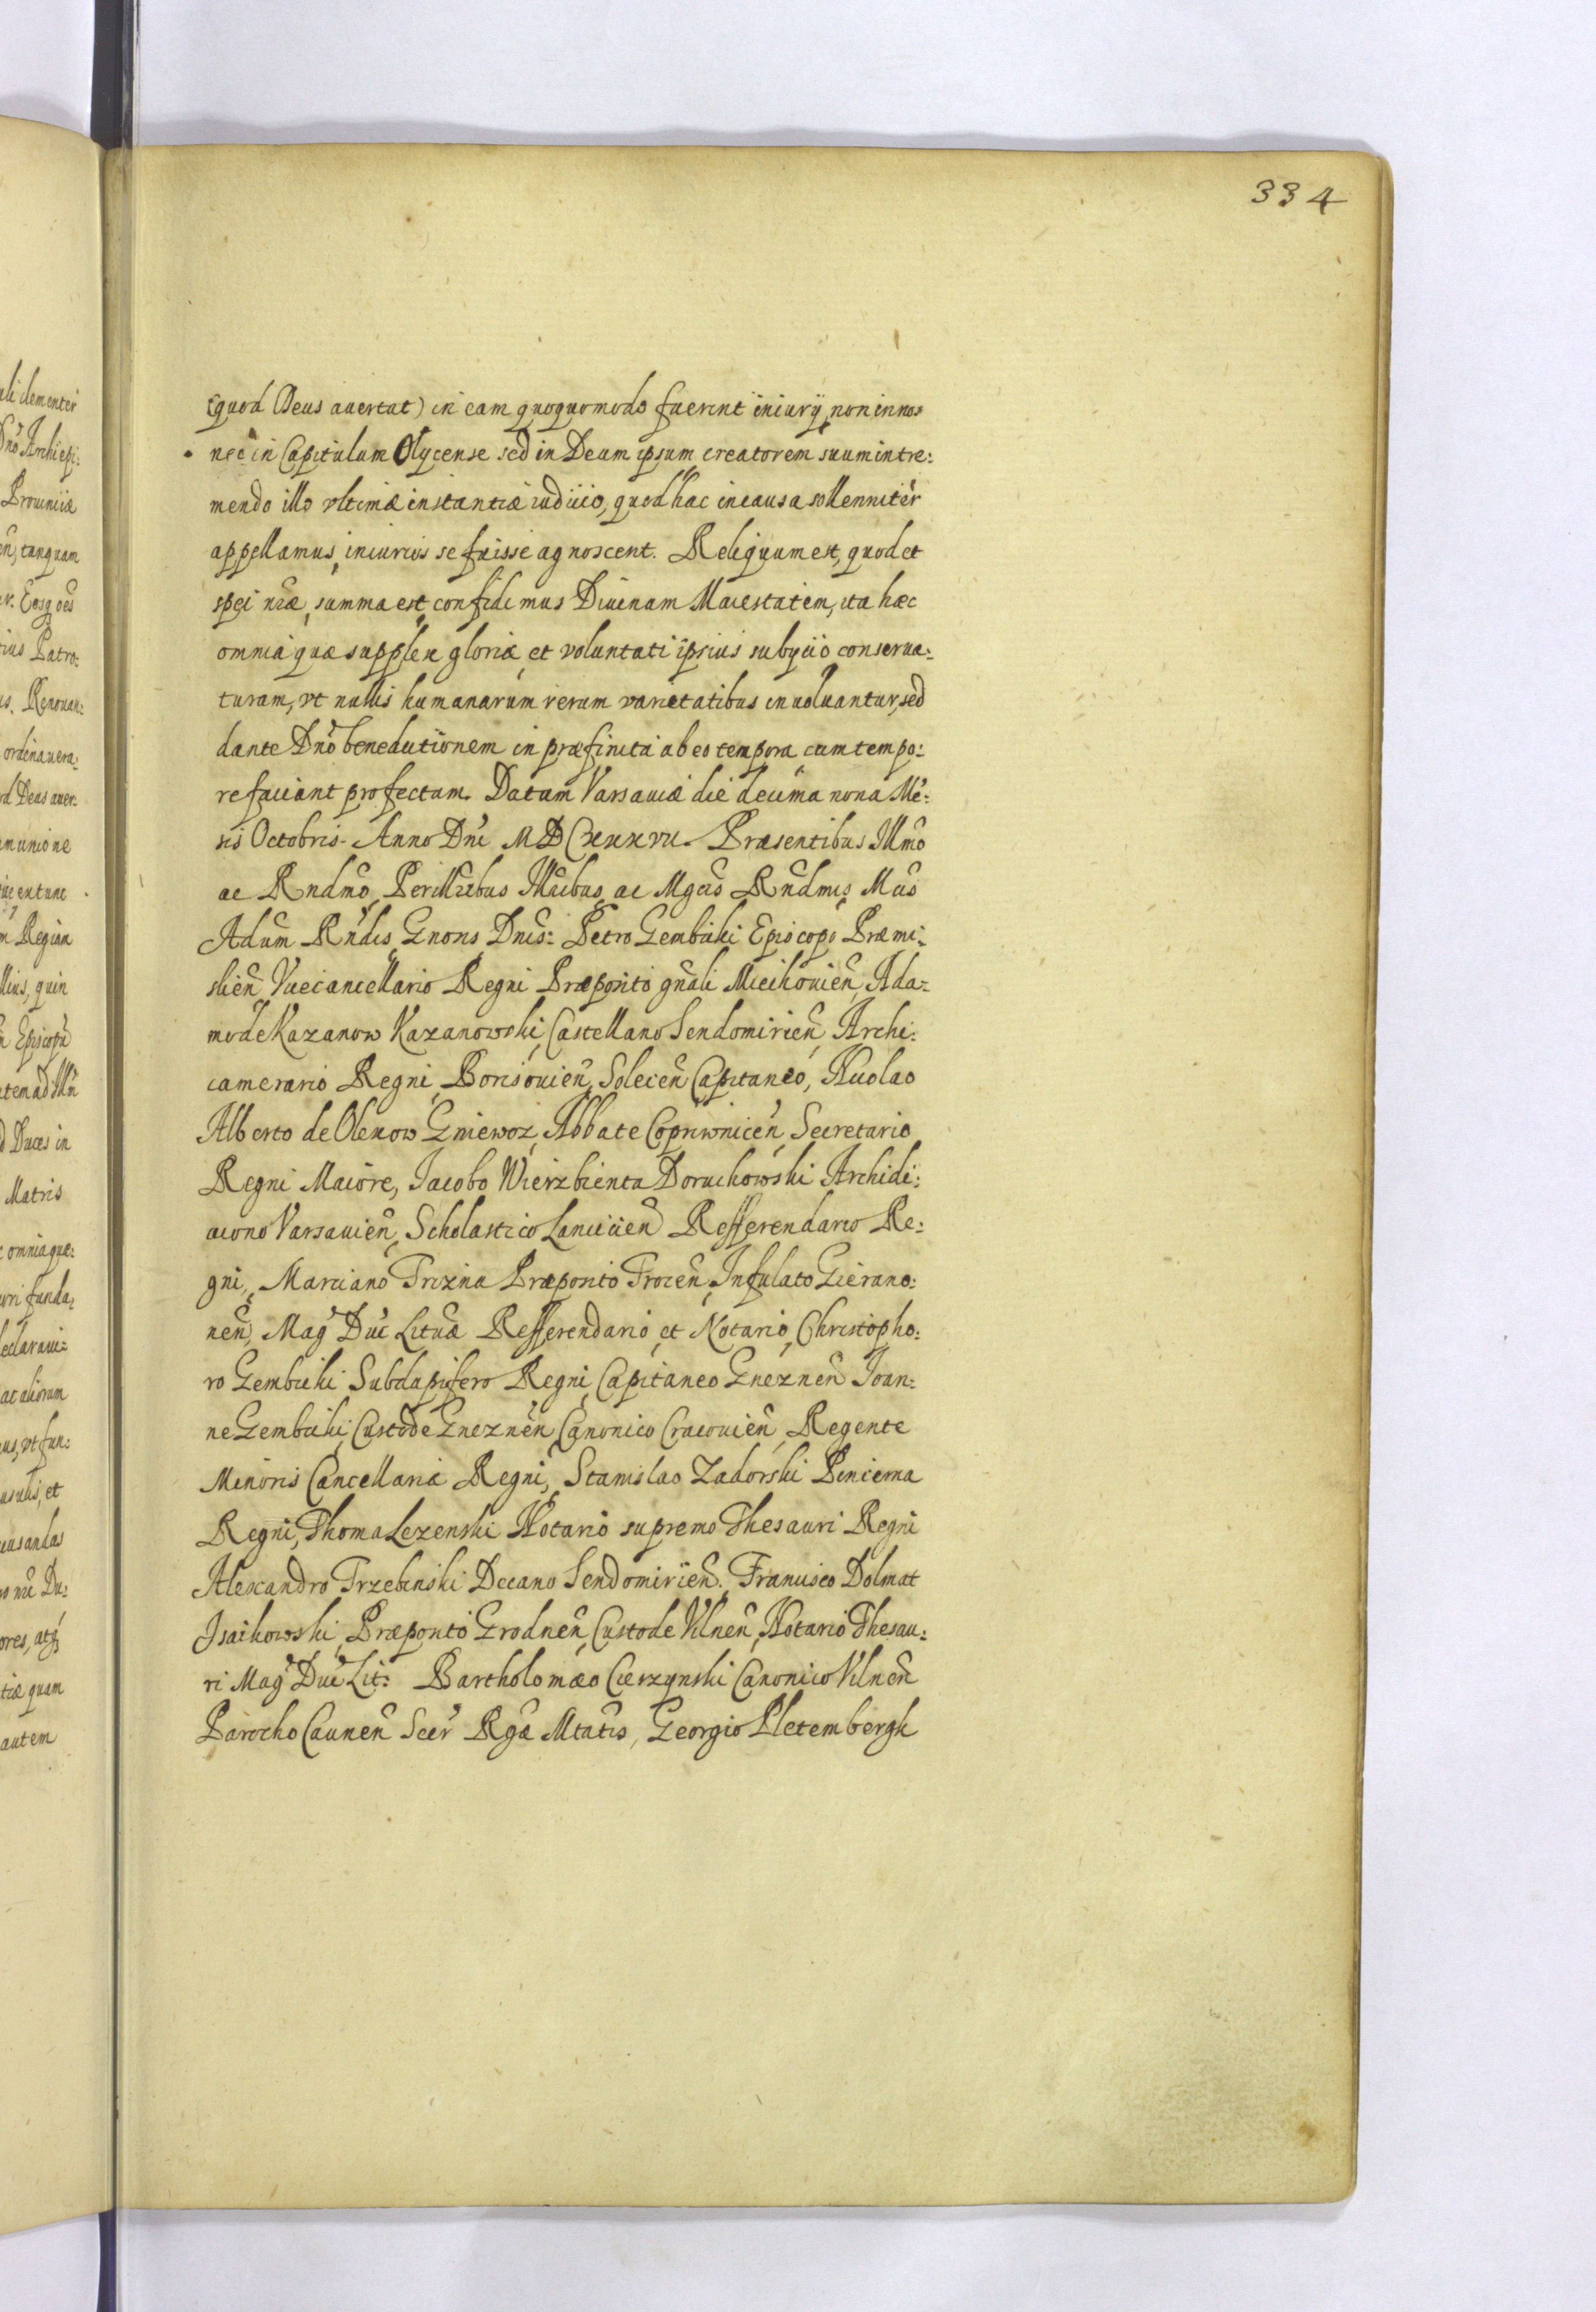 334
(quod Deus auertat) in eam quoquomodo fuerint iniurij, non in nos
nec in Capitulum Olycense sed in Deum ipsum creatorem suum in tre:
mendo illo vltimæ instantiæ iudicio, quod hac in causa sollenniter
appellamus, iniurios se fuisse agnoscent. Reliquum est, quod et
spei nræ summa est, confidimus Diuinam Maiestatem, ita hæc
omnia quæ supplex gloriæ et voluntati ipsius subycio conserua:
turam, vt nullis humanarum rerum varietatibus inuoluantur, sed
dante Dno benedictionem in præfinita ab eo tempora cum tempo:
re faciant profectum. Datum Varsauiæ die decima nona Mē:
sis Octobris. Anno Dni MDCxxxvii. Præsentibus Illmo
ac Rndmo, Perillribus Illribus, ac Mgcis Rndmis Mcis
Adum Rndis, Gnosis Dnis: Petro Gembicki Episcopo Præmi:
slien Vicecancellario Regni Præposito gnali Miechouien, Ada:
mo de Kazanow Kazanowski, Castellano Sendomirien, Archi:
camerario Regni, Borisouien, Solecen Capitaneo, Nicolao
Alberto de Olexow Gniewoz, Abbate Copriwnicen, Secretario
Regni Maiore, Iacobo Wierzbienta Doruchowski Archidi:
acono Varsauien, Scholastico Lanciciien Refferendario Re:
gni, Marciano Trizna Præposito Trocen, Infulato Gierano:
nen, Mag Duc Lituæ Refferendario, et Notario, Christopho:
ro Gembicki Subdapifero Regni, Capitaneo Gneznen Ioan:
ne Gembicki, Custode Gneznen Canonico Cracouien, Regente
Minoris Cancellariæ Regni, Stanislao Zadorski Pincerna
Regni, Thoma Lezenski Notario supremo Thesauri Regni
Alexandro Trzebinski Decano Sendomirien. Francisco Dolmat
Isaikowski, Præposito Grodnen, Custode Vilnen, Notario Thesau:
ri Mag Duc Lit: Bartholomæo Cierzynski Canonico Vilnen
Parocho Caunen Secr Rgæ Mtatis, Georgio Pletembergk